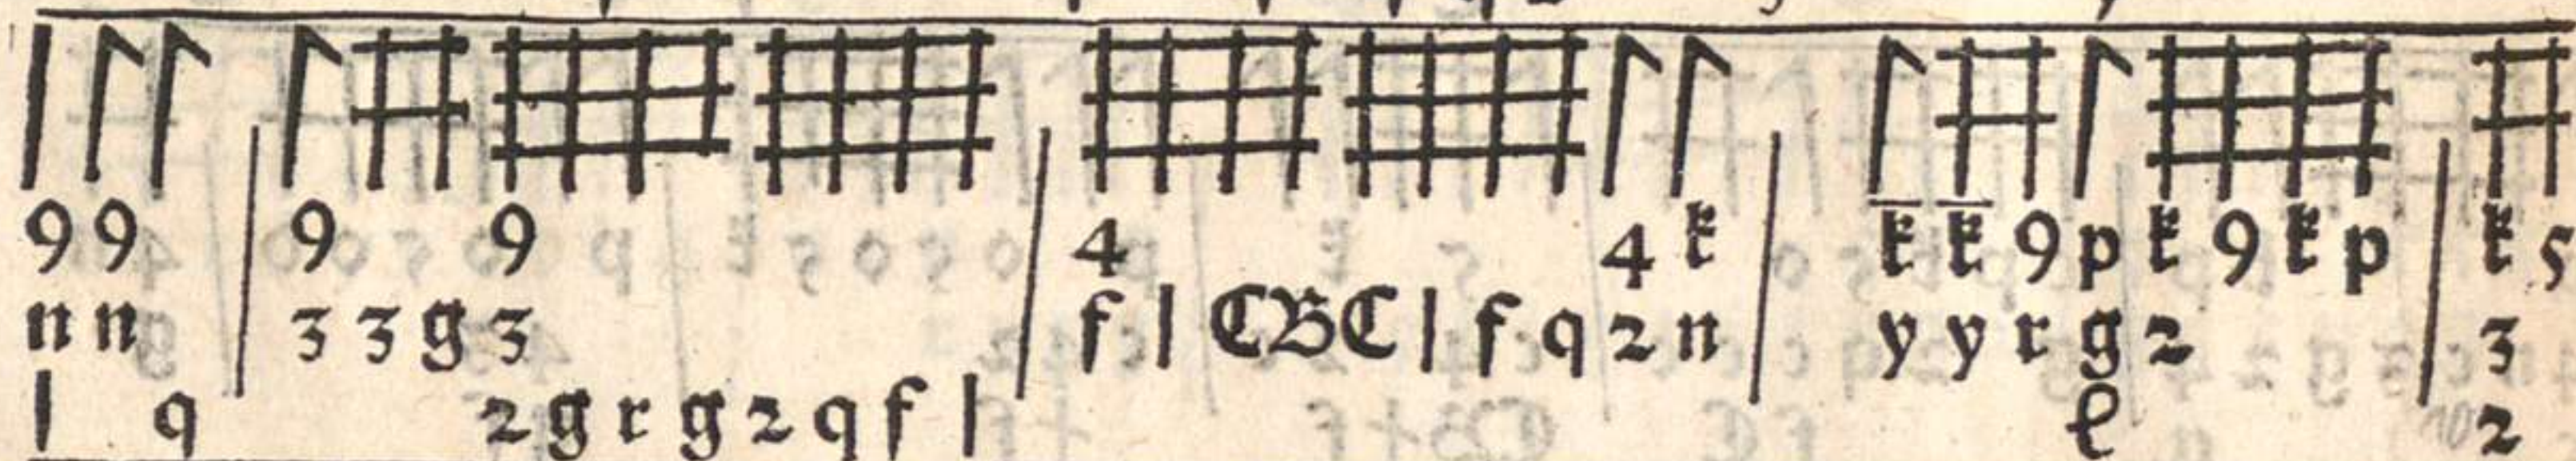 9 9 | 9 9 | 4 4 k | k̅ k̅ 9 p k 9 k p | k 5
n n | 3 3 g 3 | f l C B C l f q 2 n | y y r g 2 | 3
l q 2 g r g 2 q f l e 2